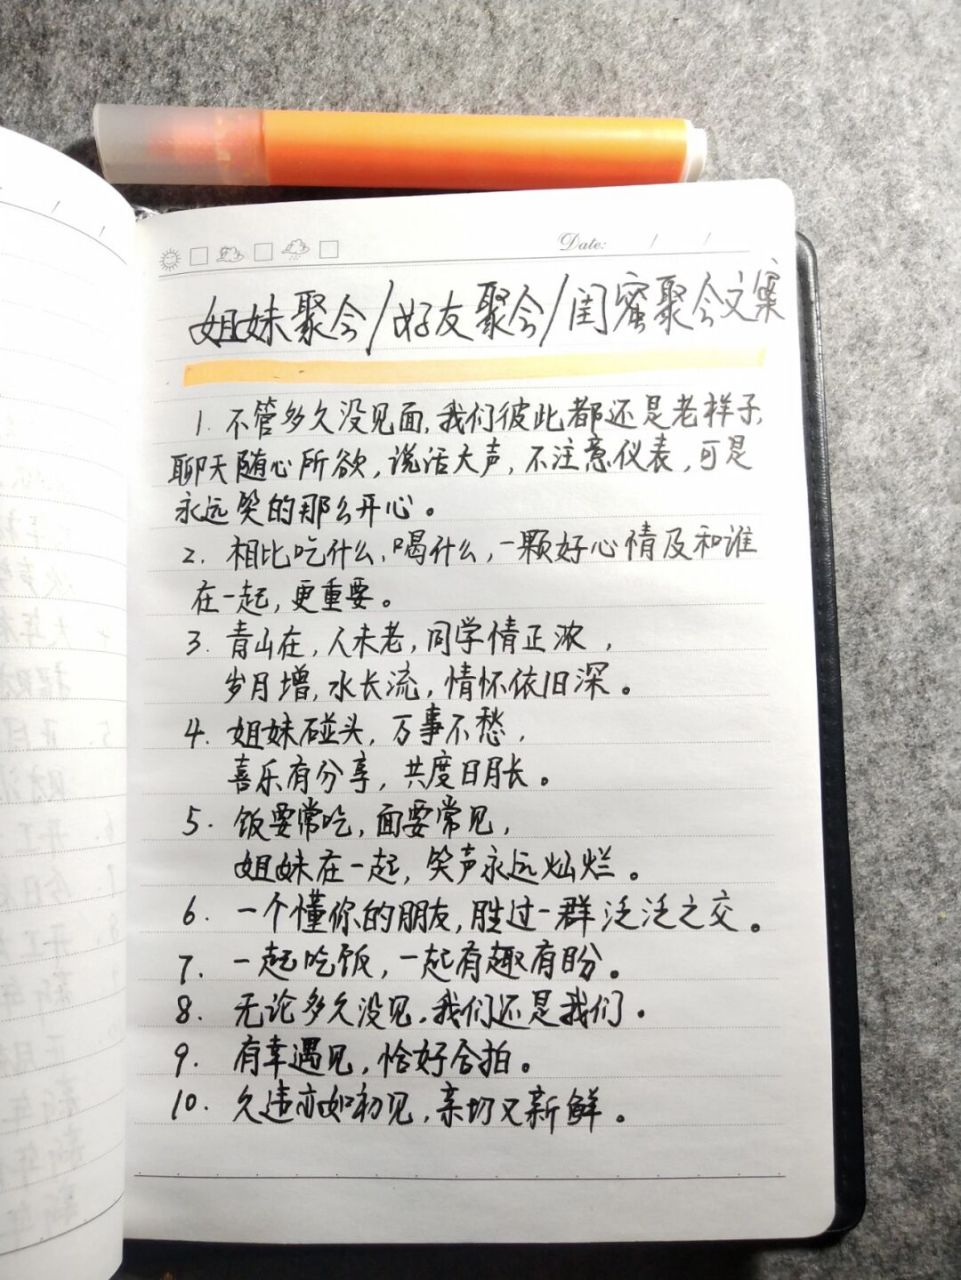 Date: / /
姐妹聚会/好友聚会/闺蜜聚会文案
1. 不管多久没见面,我们彼此都还是老样子,
聊天随心所欲,说话大声,不注意仪表,可是
永远笑的那么开心。
2. 相比吃什么,喝什么,一颗好心情及和谁
在一起,更重要。
3. 青山在,人未老,同学情正浓,
岁月增,水长流,情怀依旧深。
4. 姐妹碰头,万事不愁,
喜乐有分享,共度日月长。
5. 饭要常吃,面要常见,
姐妹在一起,笑声永远灿烂。
6. 一个懂你的朋友,胜过一群泛泛之交。
7. 一起吃饭,一起有趣有盼。
8. 无论多久没见,我们还是我们。
9. 有幸遇见,恰好合拍。
10. 久违亦如初见,亲切又新鲜。